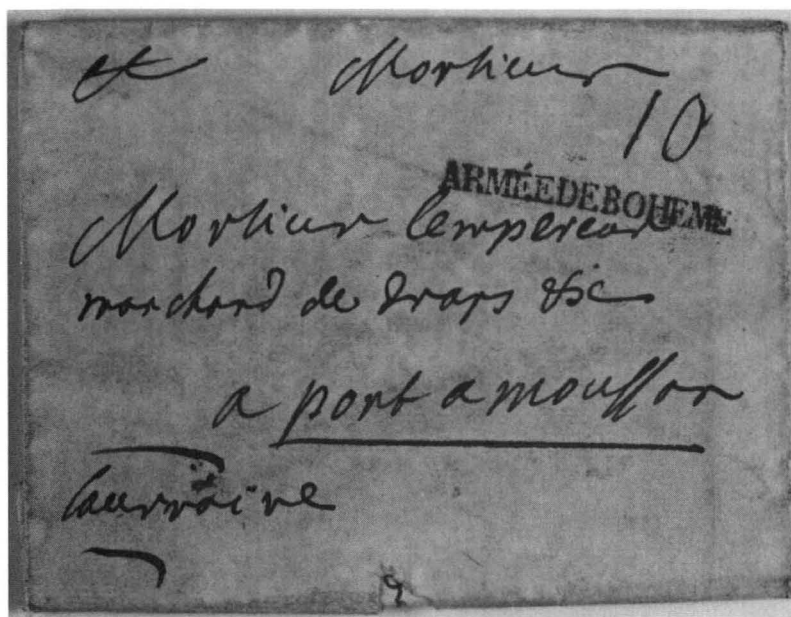 A Monsieur
10
ARMÉEDEBOHEME
Monsieur Lempereur
marchand de draps &c
a pont a mousson
Lourraine